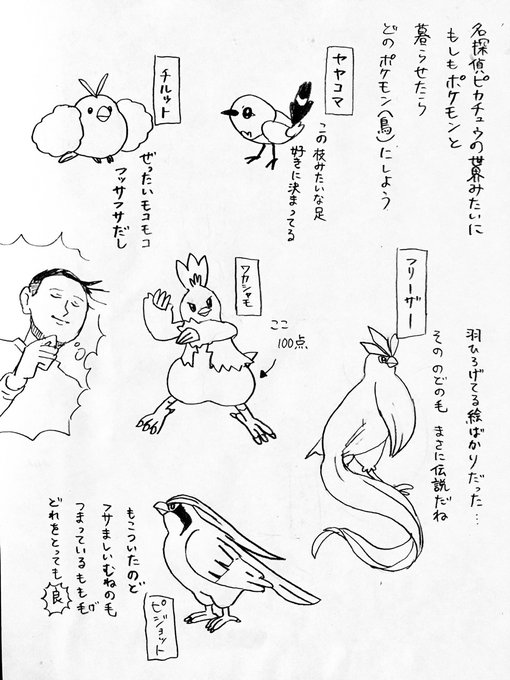 名探偵ピカチュウの世界みたいに
もしもポケモンと
暮らせたら
どのポケモン(鳥)にしよう
ヤヤコマ
この枝みたいな足
好きに決まってる
チルット
ぜったいモコモコ
フッサフサだし
フリーザー
羽ひろげてる絵ばかりだった…
そののどの毛 まさに伝説だね
ワカシャモ
ここ
100点
ピジョット
もこついたのど
フサましいむねの毛
つまっているもも毛
どれをとっても
良